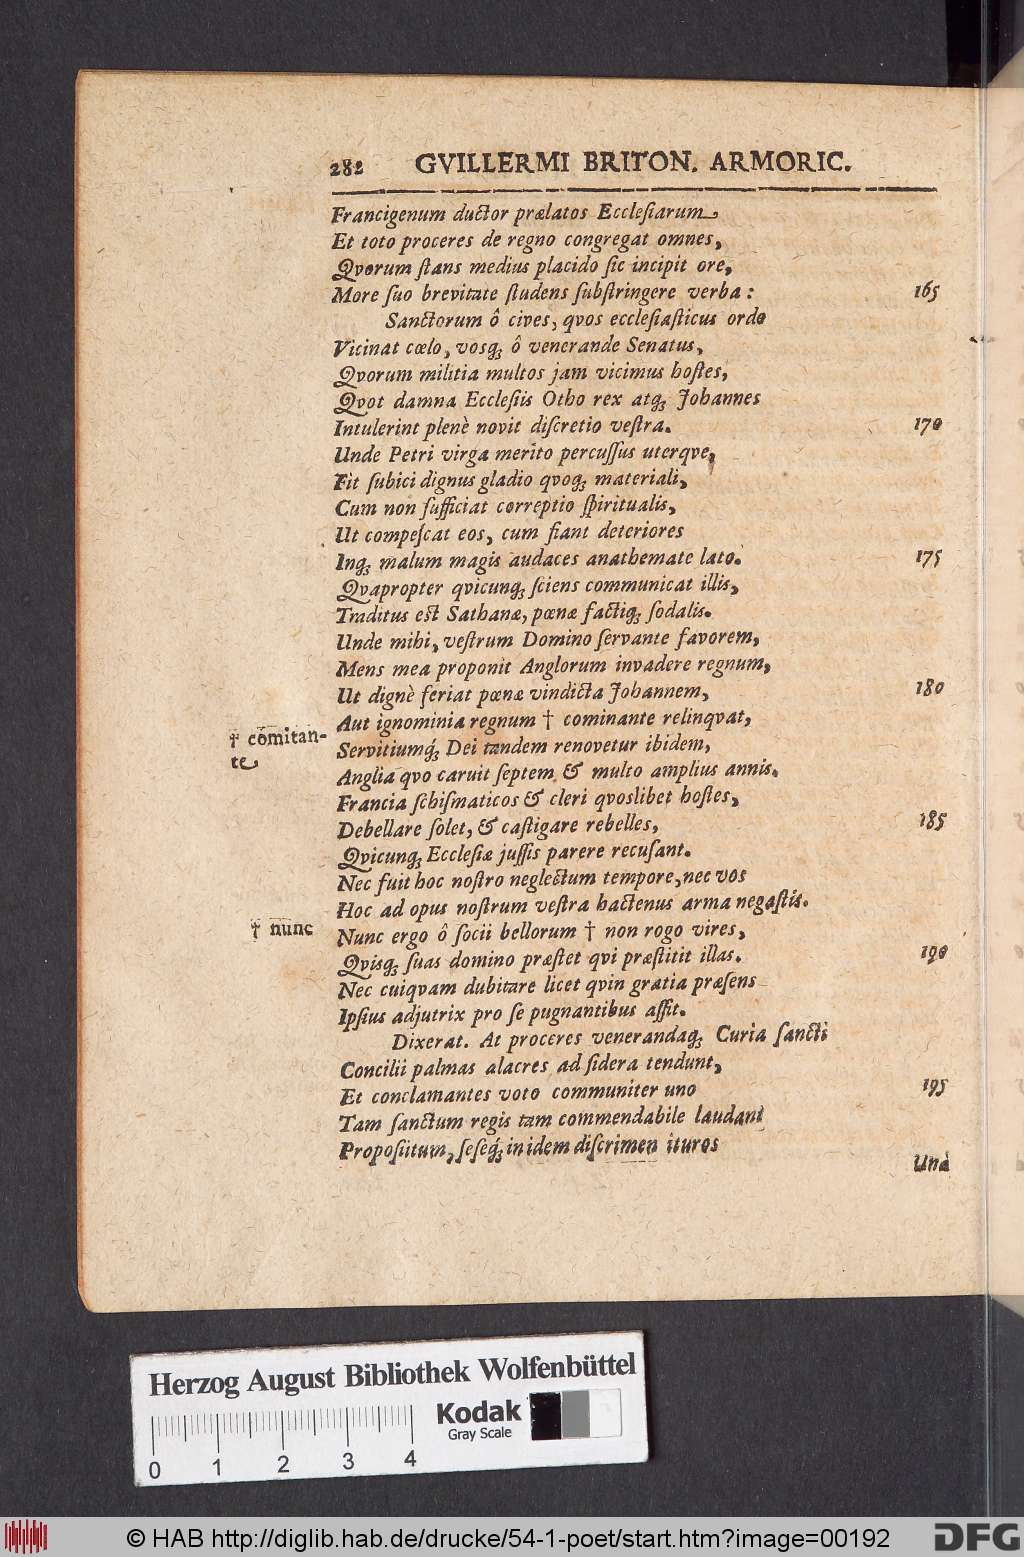 282 GVILLERMI BRITON. ARMORIC.
Francigenum ductor prælatos Ecclesiarum,
Et toto proceres de regno congregat omnes,
Qvorum stans medius placido sic incipit ore,
More suo brevitate studens substringere verba: 165
Sanctorum ô cives, qvos ecclesiasticus ordo
Vicinat cœlo, vosqꝫ ô venerande Senatus,
Qvorum militia multos jam vicimus hostes,
Qvot damna Ecclesiis Otho rex atqꝫ Johannes
Intulerint plenè novit discretio vestra. 170
Unde Petri virga merito percussus uterqve,
Fit subici dignus gladio qvoqꝫ materiali,
Cum non sufficiat correptio spiritualis,
Ut compescat eos, cum fiant deteriores
Inqꝫ malum magis audaces anathemate lato. 175
Qvapropter qvicunqꝫ sciens communicat illis,
Traditus est Sathanæ, pœnæ factiqꝫ sodalis.
Unde mihi, vestrum Domino servante favorem,
Mens mea proponit Anglorum invadere regnum,
Ut dignè feriat pœnæ vindicta Johannem, 180
Aut ignominia regnum † cominante relinqvat,
† comitan-
te
Servitiumqꝫ́ Dei tandem renovetur ibidem,
Anglia qvo caruit septem & multo amplius annis.
Francia schismaticos & cleri qvoslibet hostes,
Debellare solet, & castigare rebelles, 185
Qvicunqꝫ Ecclesiæ jussis parere recusant.
Nec fuit hoc nostro neglectum tempore, nec vos
Hoc ad opus nostrum vestra hactenus arma negastis.
Nunc ergo ô socii bellorum † non rogo vires,
† nunc
Qvisqꝫ suas domino præstet qvi præstitit illas. 190
Nec cuiqvam dubitare licet qvin gratia præsens
Ipsius adjutrix pro se pugnantibus assit.
Dixerat. At proceres venerandaqꝫ Curia sancti
Concilii palmas alacres ad sidera tendunt,
Et conclamantes voto communiter uno 195
Tam sanctum regis tam commendabile laudant
Proposiitum, seseqꝫ́ in idem discrimen ituros
Unà
Herzog August Bibliothek Wolfenbüttel
Kodak
Gray Scale
0 1 2 3 4
© HAB http://diglib.hab.de/drucke/54-1-poet/start.htm?image=00192
DFG